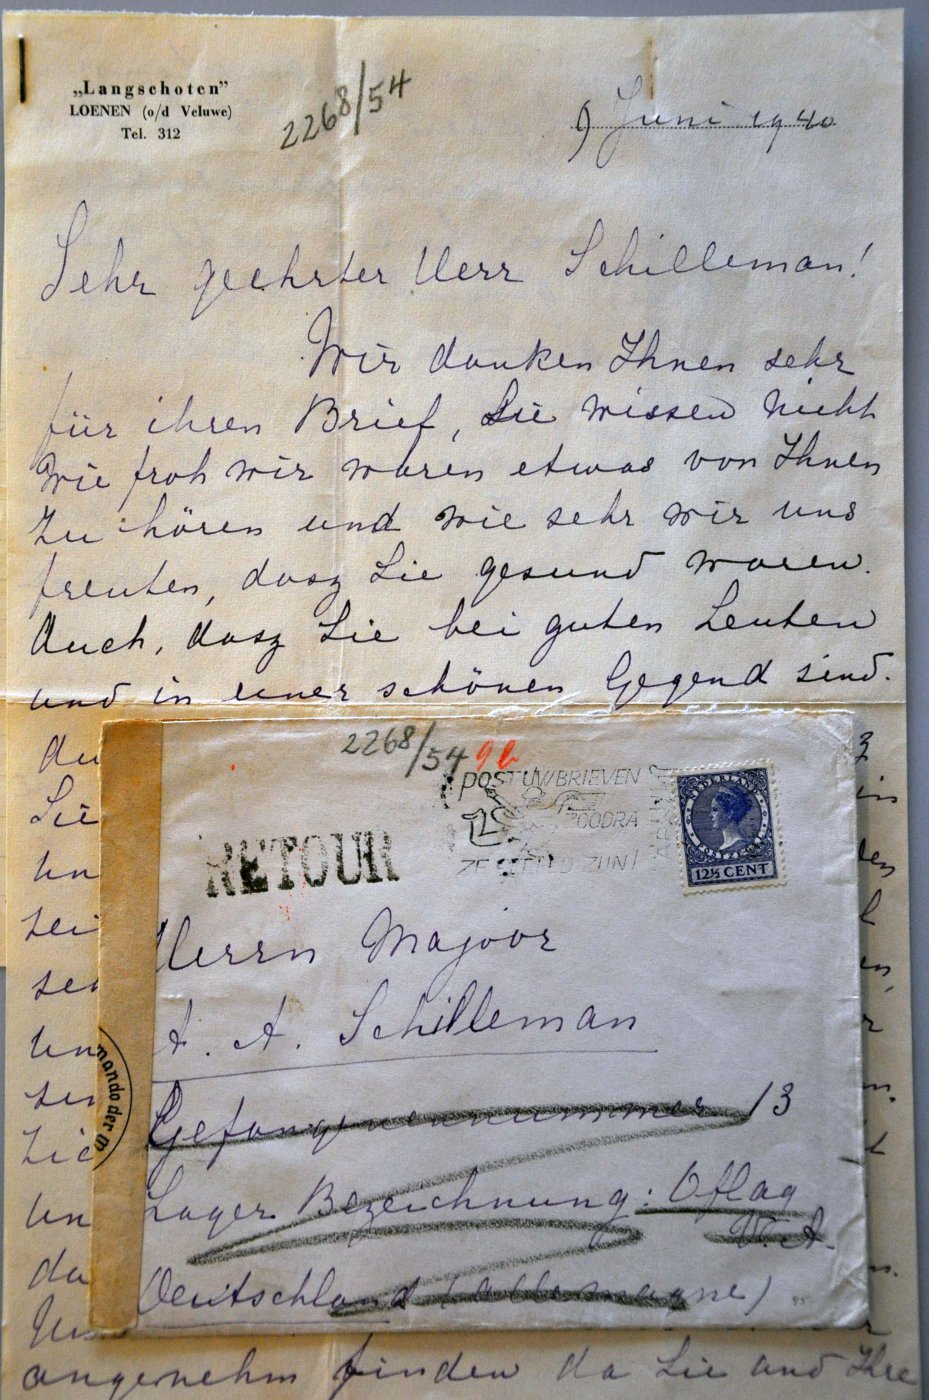 „Langschoten”
LOENEN (o/d Veluwe)
Tel. 312
2268/54
9 Juni 1940
Sehr geehrter Herr Schilleman!
Wir danken Ihnen sehr
für ihren Brief, Sie wissen nicht
wie froh wir waren etwas von Ihnen
zu hören und wie sehr wir uns
freuten, dasz Sie gesund waren.
Auch, dasz Sie bei guten Leuten
und in einer schönen Gegend sind.
Sie
angenehm finden da Sie und Ihre
2268/54 9b
POST UW BRIEVEN
ZOODRA
ZE GEREED ZIJN!
NEDERLAND
12½ CENT
RETOUR
Herrn Majoor
A. A. Schilleman
Gefangenennummer 13
Lager Bezeichnung: Oflag
VI. A.
Deutschland (Allemagne)
mando der